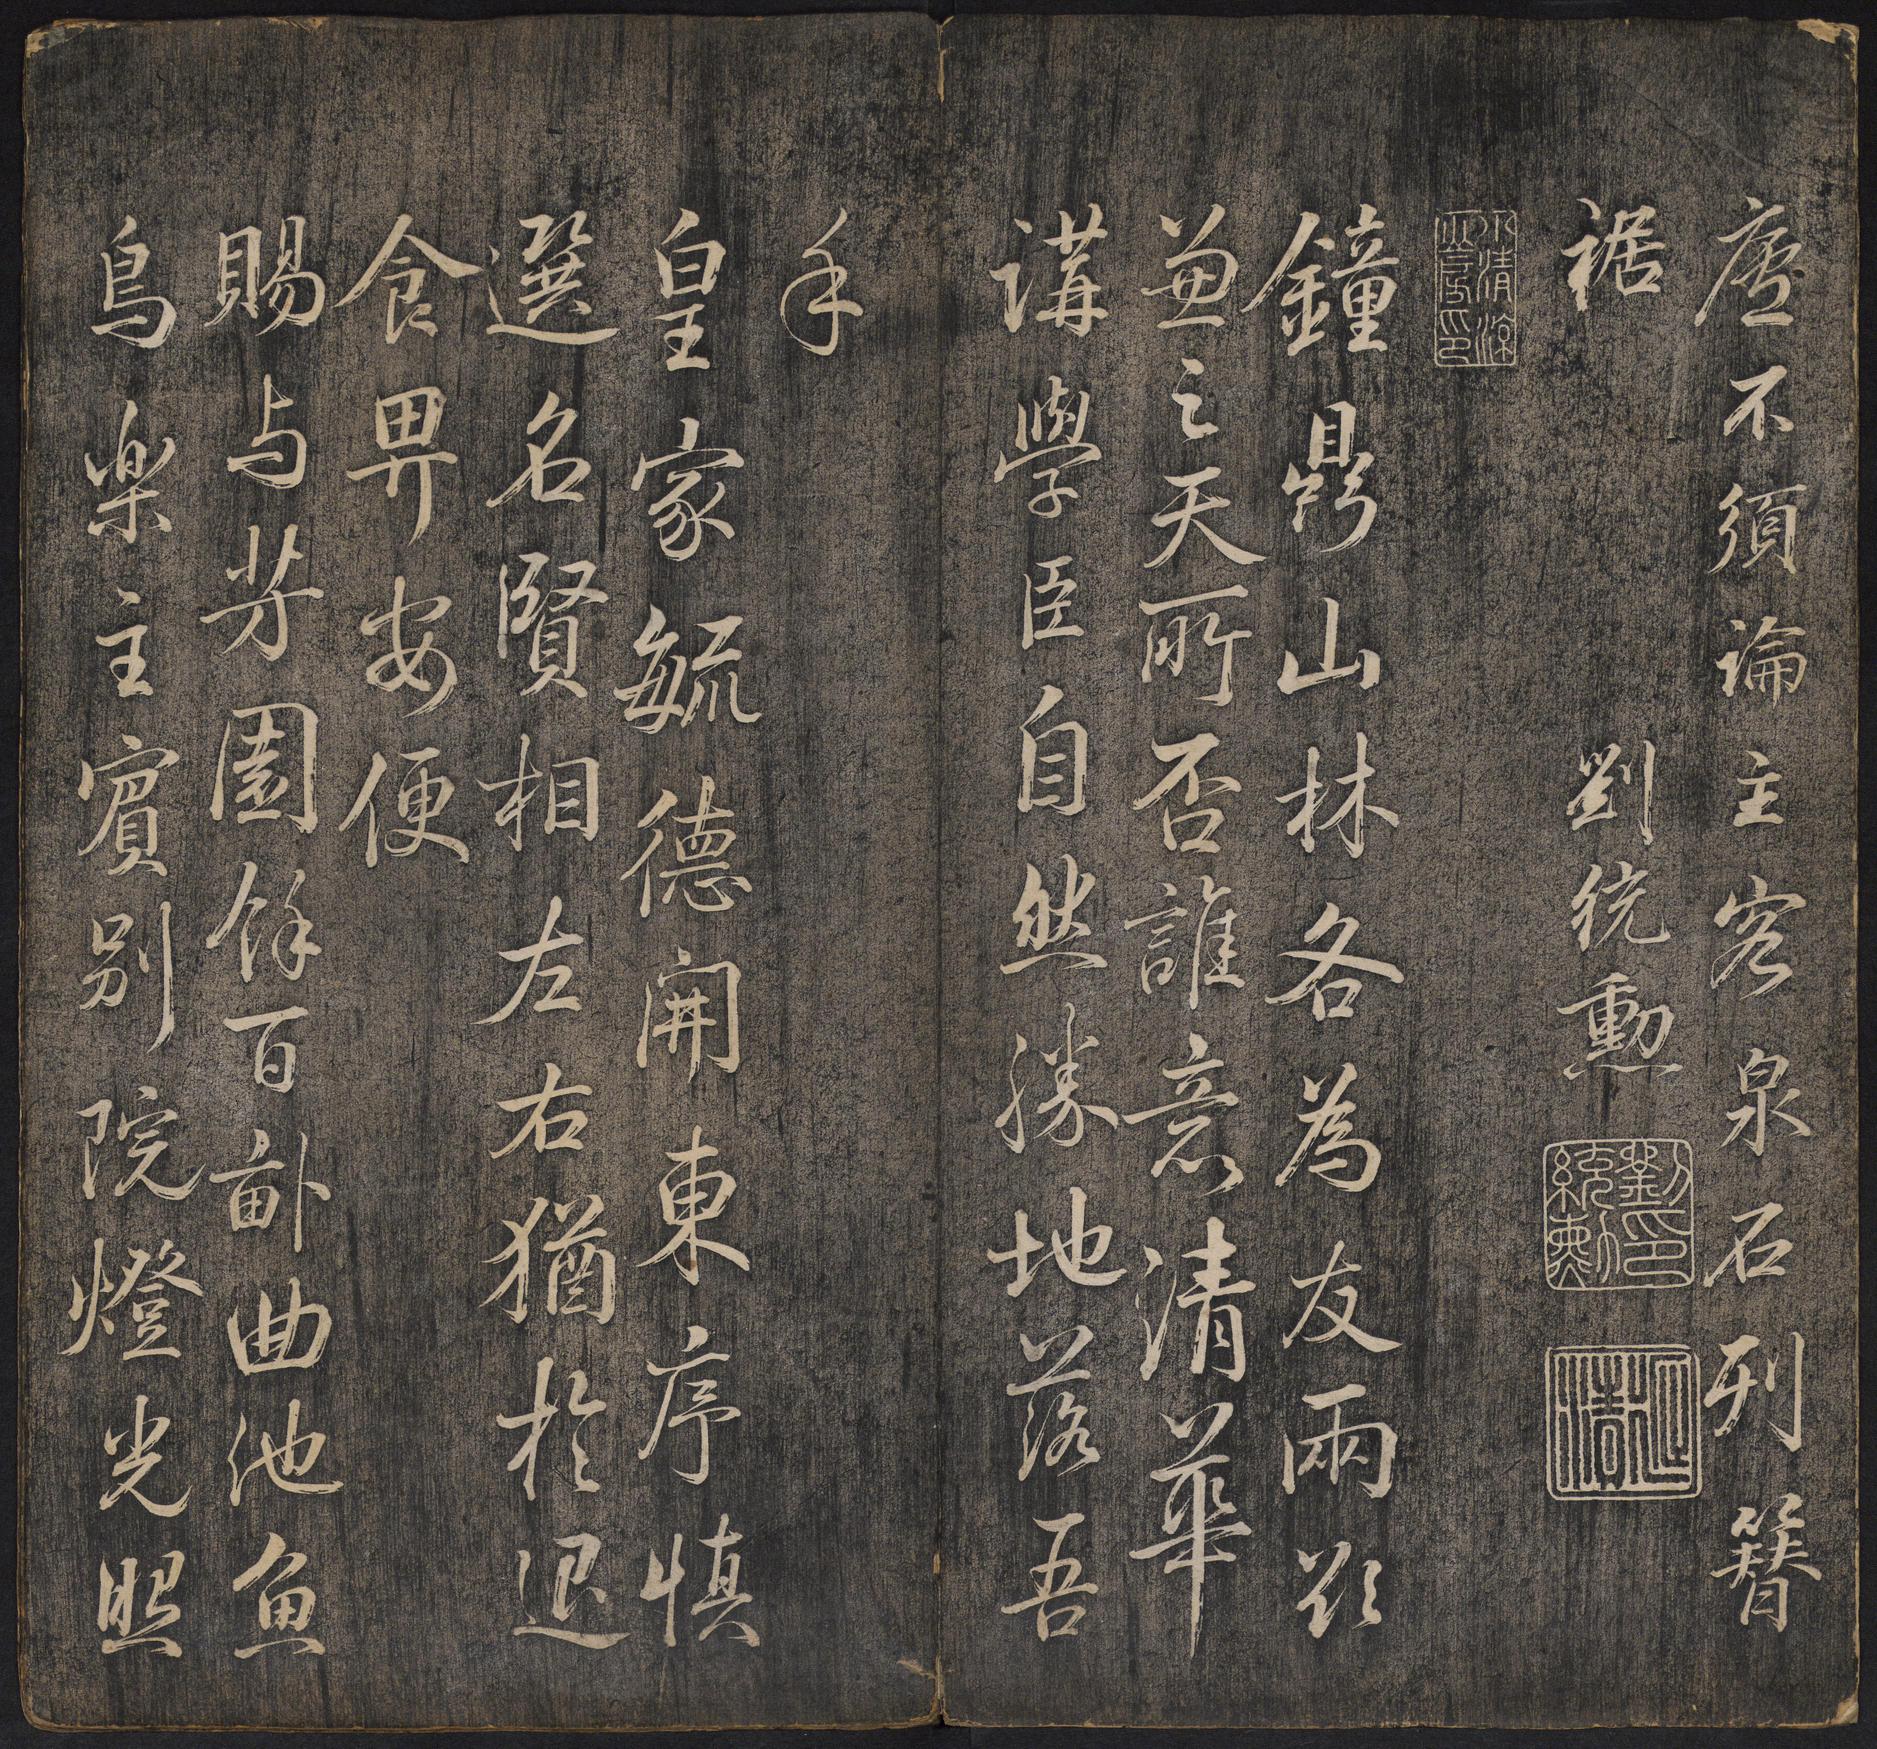 唐不須論主客泉石列簪
裾
劉統勳
劉統勳印
水清濠
鐘鼎山林各為友兩欲
兼之天所否誰意清華
講學臣自然勝地落吾
手
皇家毓德開東序慎
選名賢相左右猶於退
食畀安便
賜与芳園餘百畝曲池魚
鳥樂主賓別院燈光照